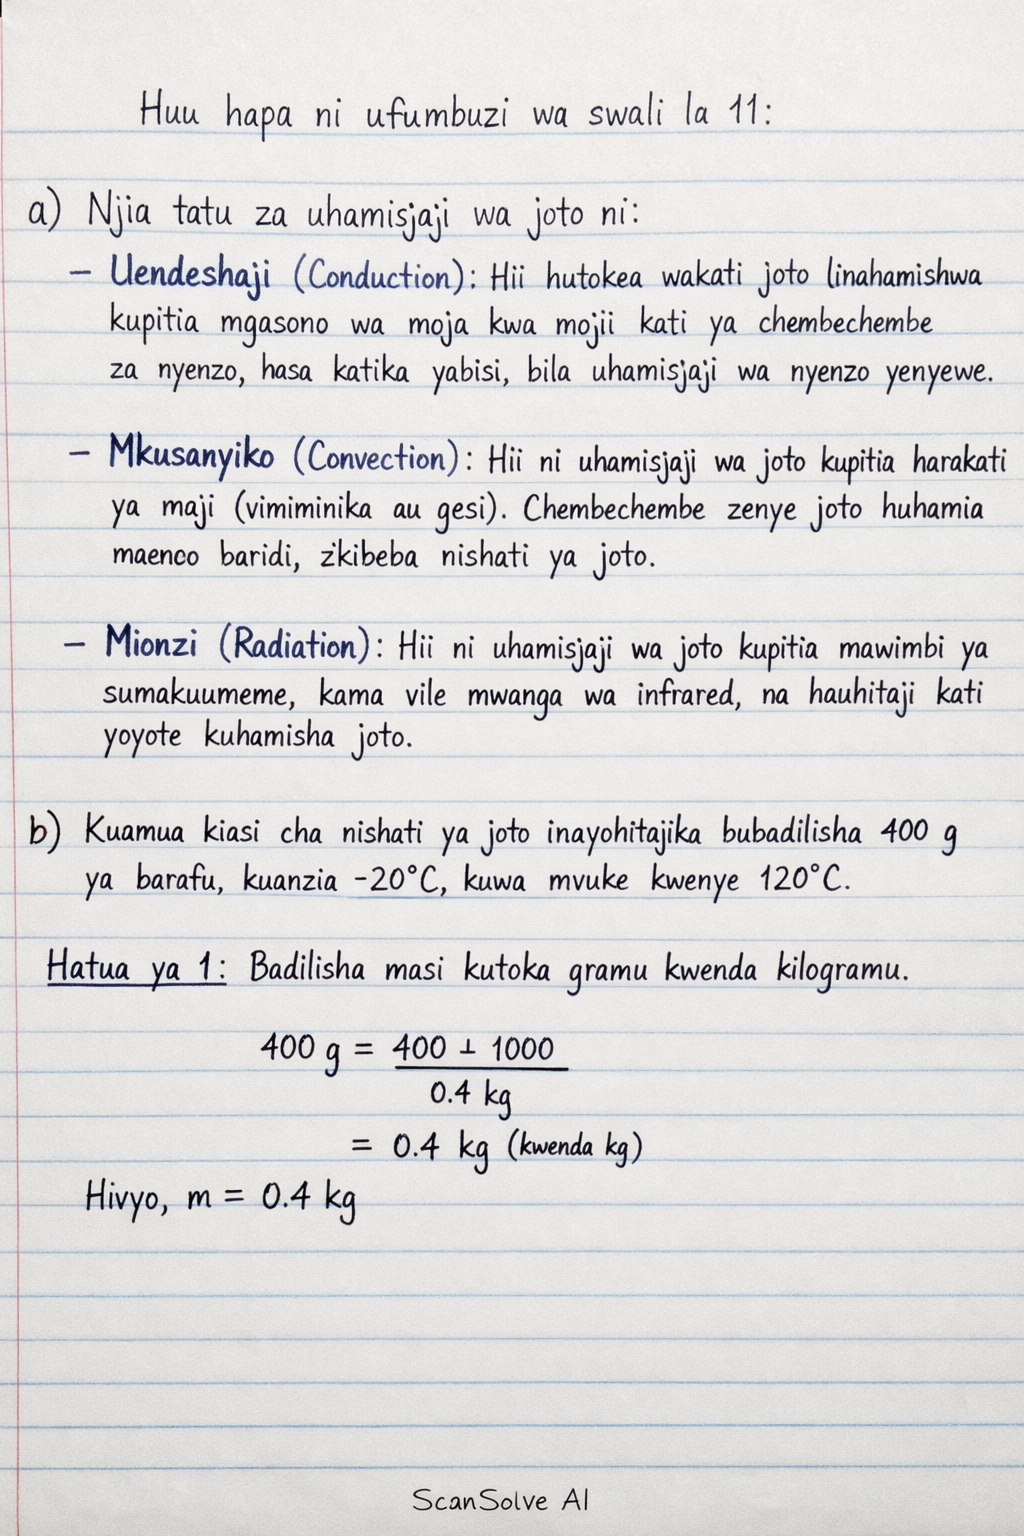 Huu hapa ni ufumbuzi wa swali la 11:
a) Njia tatu za uhamisjaji wa joto ni:
– Uendeshaji (Conduction): Hii hutokea wakati joto linahamishwa
kupitia mgasono wa moja kwa mojii kati ya chembechembe
za nyenzo, hasa katika yabisi, bila uhamisjaji wa nyenzo yenyewe.
– Mkusanyiko (Convection): Hii ni uhamisjaji wa joto kupitia harakati
ya maji (vimiminika au gesi). Chembechembe zenye joto huhamia
maenco baridi, z'kibeba nishati ya joto.
– Mionzi (Radiation): Hii ni uhamisjaji wa joto kupitia mawimbi ya
sumakuumeme, kama vile mwanga wa infrared, na hauhitaji kati
yoyote kuhamisha joto.
b) Kuamua kiasi cha nishati ya joto inayohitajika bubadilisha 400 g
ya barafu, kuanzia -20°C, kuwa mvuke kwenye 120°C.
Hatua ya 1: Badilisha masi kutoka gramu kwenda kilogramu.
400 g = 400 ⊥ 1000
0.4 kg
= 0.4 kg (kwenda kg)
Hivyo, m = 0.4 kg
ScanSolve AI